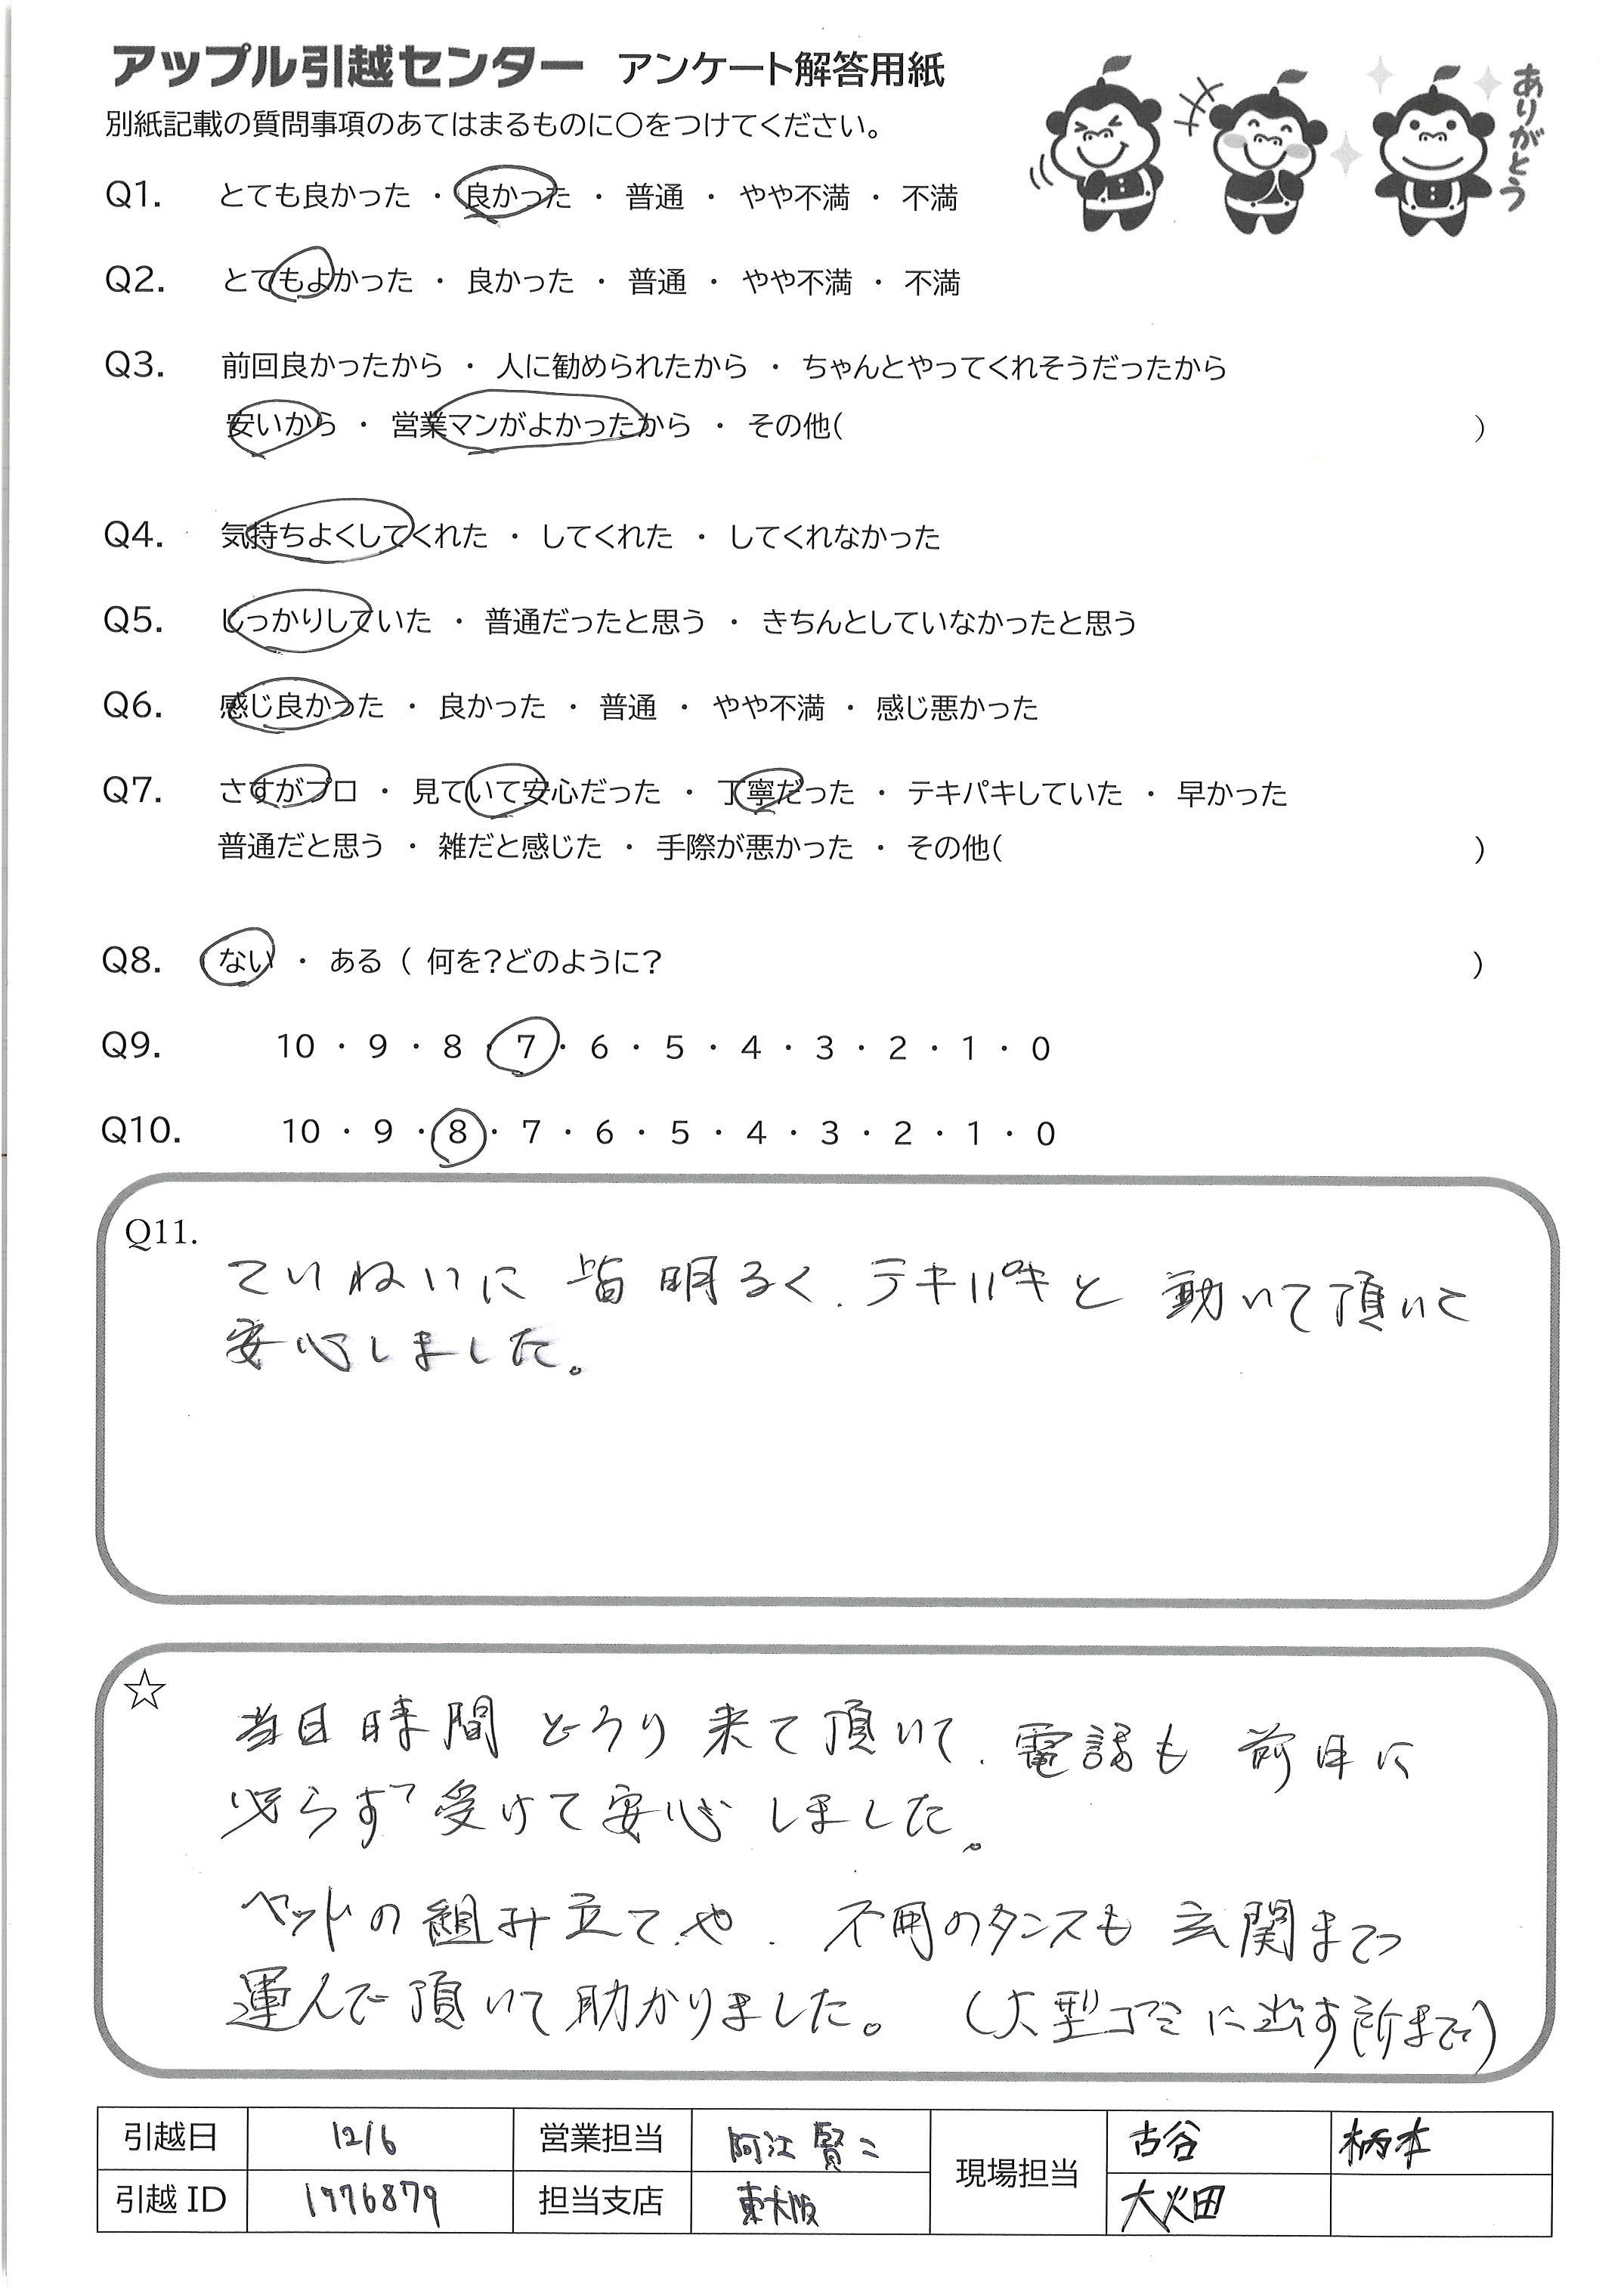 アップル引越センター アンケート解答用紙
別紙記載の質問事項のあてはまるものに〇をつけてください。
ありがとう
Q1. とても良かった ・ 良かった ・ 普通 ・ やや不満 ・ 不満
Q2. とてもよかった ・ 良かった ・ 普通 ・ やや不満 ・ 不満
Q3. 前回良かったから ・ 人に勧められたから ・ ちゃんとやってくれそうだったから
安いから ・ 営業マンがよかったから ・ その他( )
Q4. 気持ちよくしてくれた ・ してくれた ・ してくれなかった
Q5. しっかりしていた ・ 普通だったと思う ・ きちんとしていなかったと思う
Q6. 感じ良かった ・ 良かった ・ 普通 ・ やや不満 ・ 感じ悪かった
Q7. さすがプロ ・ 見ていて安心だった ・ 丁寧だった ・ テキパキしていた ・ 早かった
普通だと思う ・ 雑だと感じた ・ 手際が悪かった ・ その他( )
Q8. ない ・ ある ( 何を?どのように? )
Q9. 10 ・ 9 ・ 8 ・ 7 ・ 6 ・ 5 ・ 4 ・ 3 ・ 2 ・ 1 ・ 0
Q10. 10 ・ 9 ・ 8 ・ 7 ・ 6 ・ 5 ・ 4 ・ 3 ・ 2 ・ 1 ・ 0
Q11.
ていねいに 皆 明るく、テキパキと 動いて頂いて
安心しました。
☆
当日時間どうり来て頂いて、電話も 前日に
必らず受けて安心しました。
ベットの組み立てや、不用のタンスも玄関まで
運んで頂いて助かりました。 (大型ゴミに出す所まで)
引越日 12/6 営業担当 阿江 賢二 現場担当 古谷 柄本
引越 ID 1976879 担当支店 東大阪 大火田